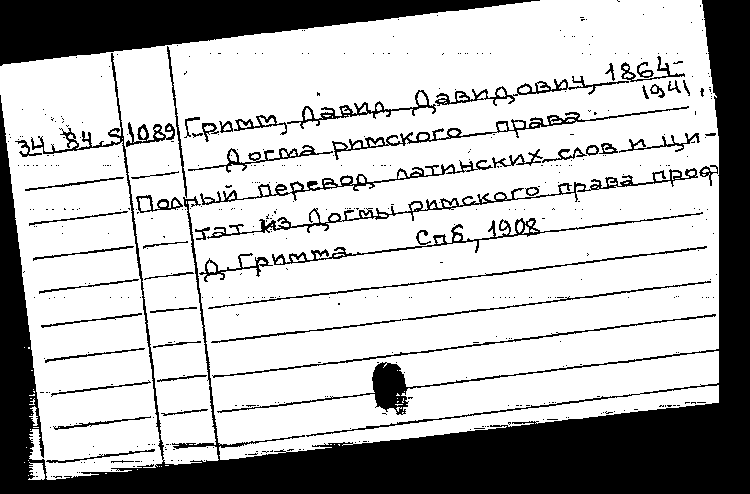 34. 84. S.1089 Гримм, Давид Давидович, 1864-
1941.
Догма римского права.
Полный перевод латинских слов и ци-
тат из Догмы римского права проф
Д. Гримма. Спб., 1908